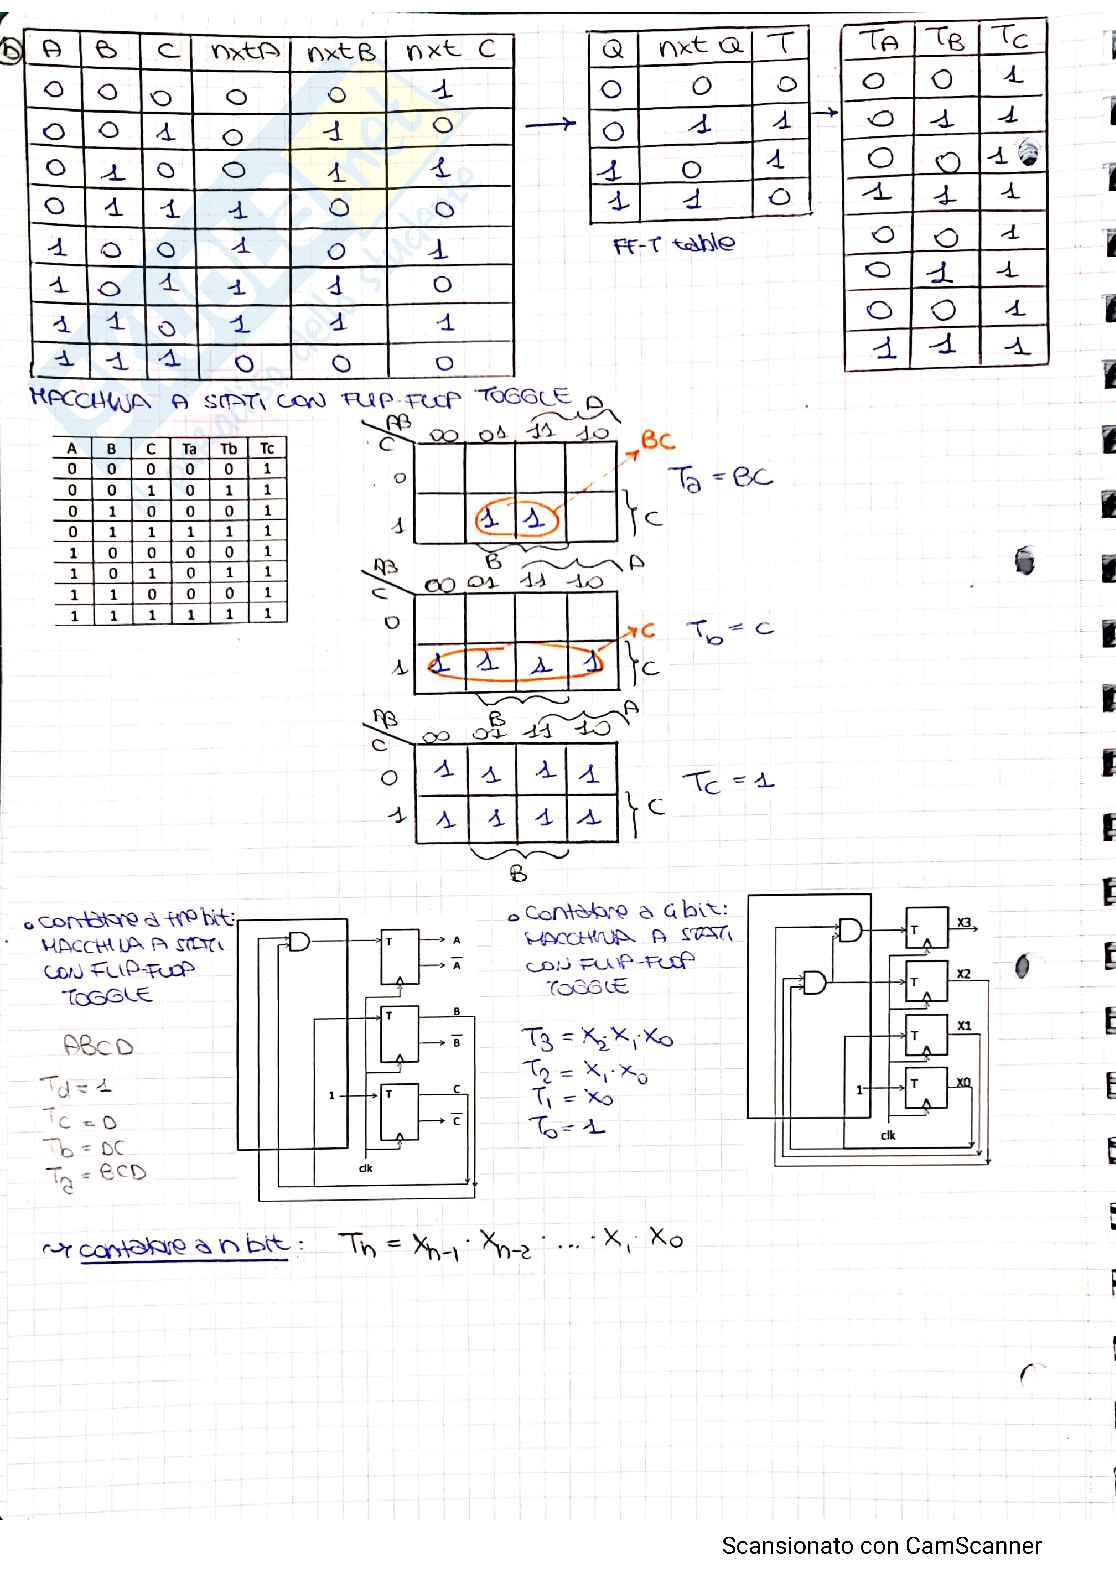 b
A B C nxtA nxtB nxt C
0 0 0 0 0 1
0 0 1 0 1 0
0 1 0 0 1 1
0 1 1 1 0 0
1 0 0 1 0 1
1 0 1 1 1 0
1 1 0 1 1 1
1 1 1 0 0 0
Q nxt Q T
0 0 0
0 1 1
1 0 1
1 1 0
FF-T table
TA TB TC
0 0 1
0 1 1
0 0 1
1 1 1
0 0 1
0 1 1
0 0 1
1 1 1
MACCHINA A STATI CON FLIP-FLOP TOGGLE
A B C Ta Tb Tc
0 0 0 0 0 1
0 0 1 0 1 1
0 1 0 0 0 1
0 1 1 1 1 1
1 0 0 0 0 1
1 0 1 0 1 1
1 1 0 0 0 1
1 1 1 1 1 1
A
AB
C
00 01 11 10
0
1 1 1
BC
C
B
Ta = BC
A
AB
C
00 01 11 10
0
1 1 1 1 1
C
C
B
Tb = C
A
AB
C
00 01 11 10
0 1 1 1 1
1 1 1 1 1
C
B
TC = 1
contatore a tre bit:
MACCHINA A STATI
CON FLIP-FLOP
TOGGLE
ABCD
Td = 1
Tc = D
Tb = DC
Ta = BCD
T
A
A
T
B
B
1
T
C
C
clk
contatore a 4 bit:
MACCHINA A STATI
CON FLIP-FLOP
TOGGLE
T3 = X2·X1·X0
T2 = X1·X0
T1 = X0
T0 = 1
T
X3
T
X2
T
X1
1
T
X0
clk
~> contatore a n bit: Tn = Xn-1 · Xn-2 · ... · X1 · X0
Scansionato con CamScanner